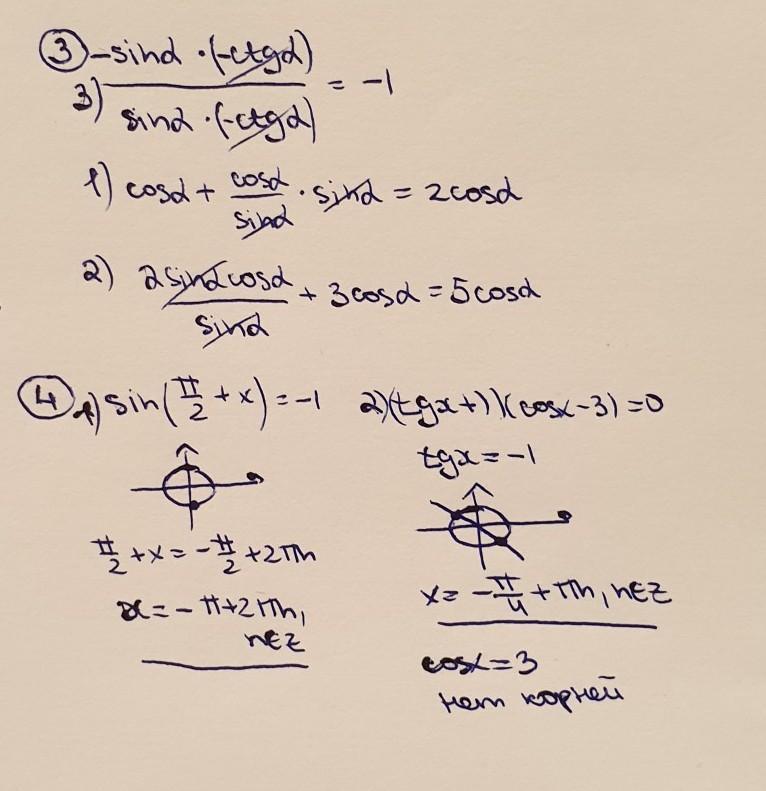 ③ -sinα · (-ctgα)
3) ――――――――― = -1
sinα · (-ctgα)
1) cosα + cosα/sinα · sinα = 2cosα
2) 2sinαcosα/sinα + 3cosα = 5cosα
④ 1) sin(π/2 + x) = -1
π/2 + x = -π/2 + 2πn
x = -π + 2πn,
n∈Z
2) (tgx+1)(cosx-3) = 0
tgx = -1
x = -π/4 + πn, n∈Z
cosx = 3
нет корней